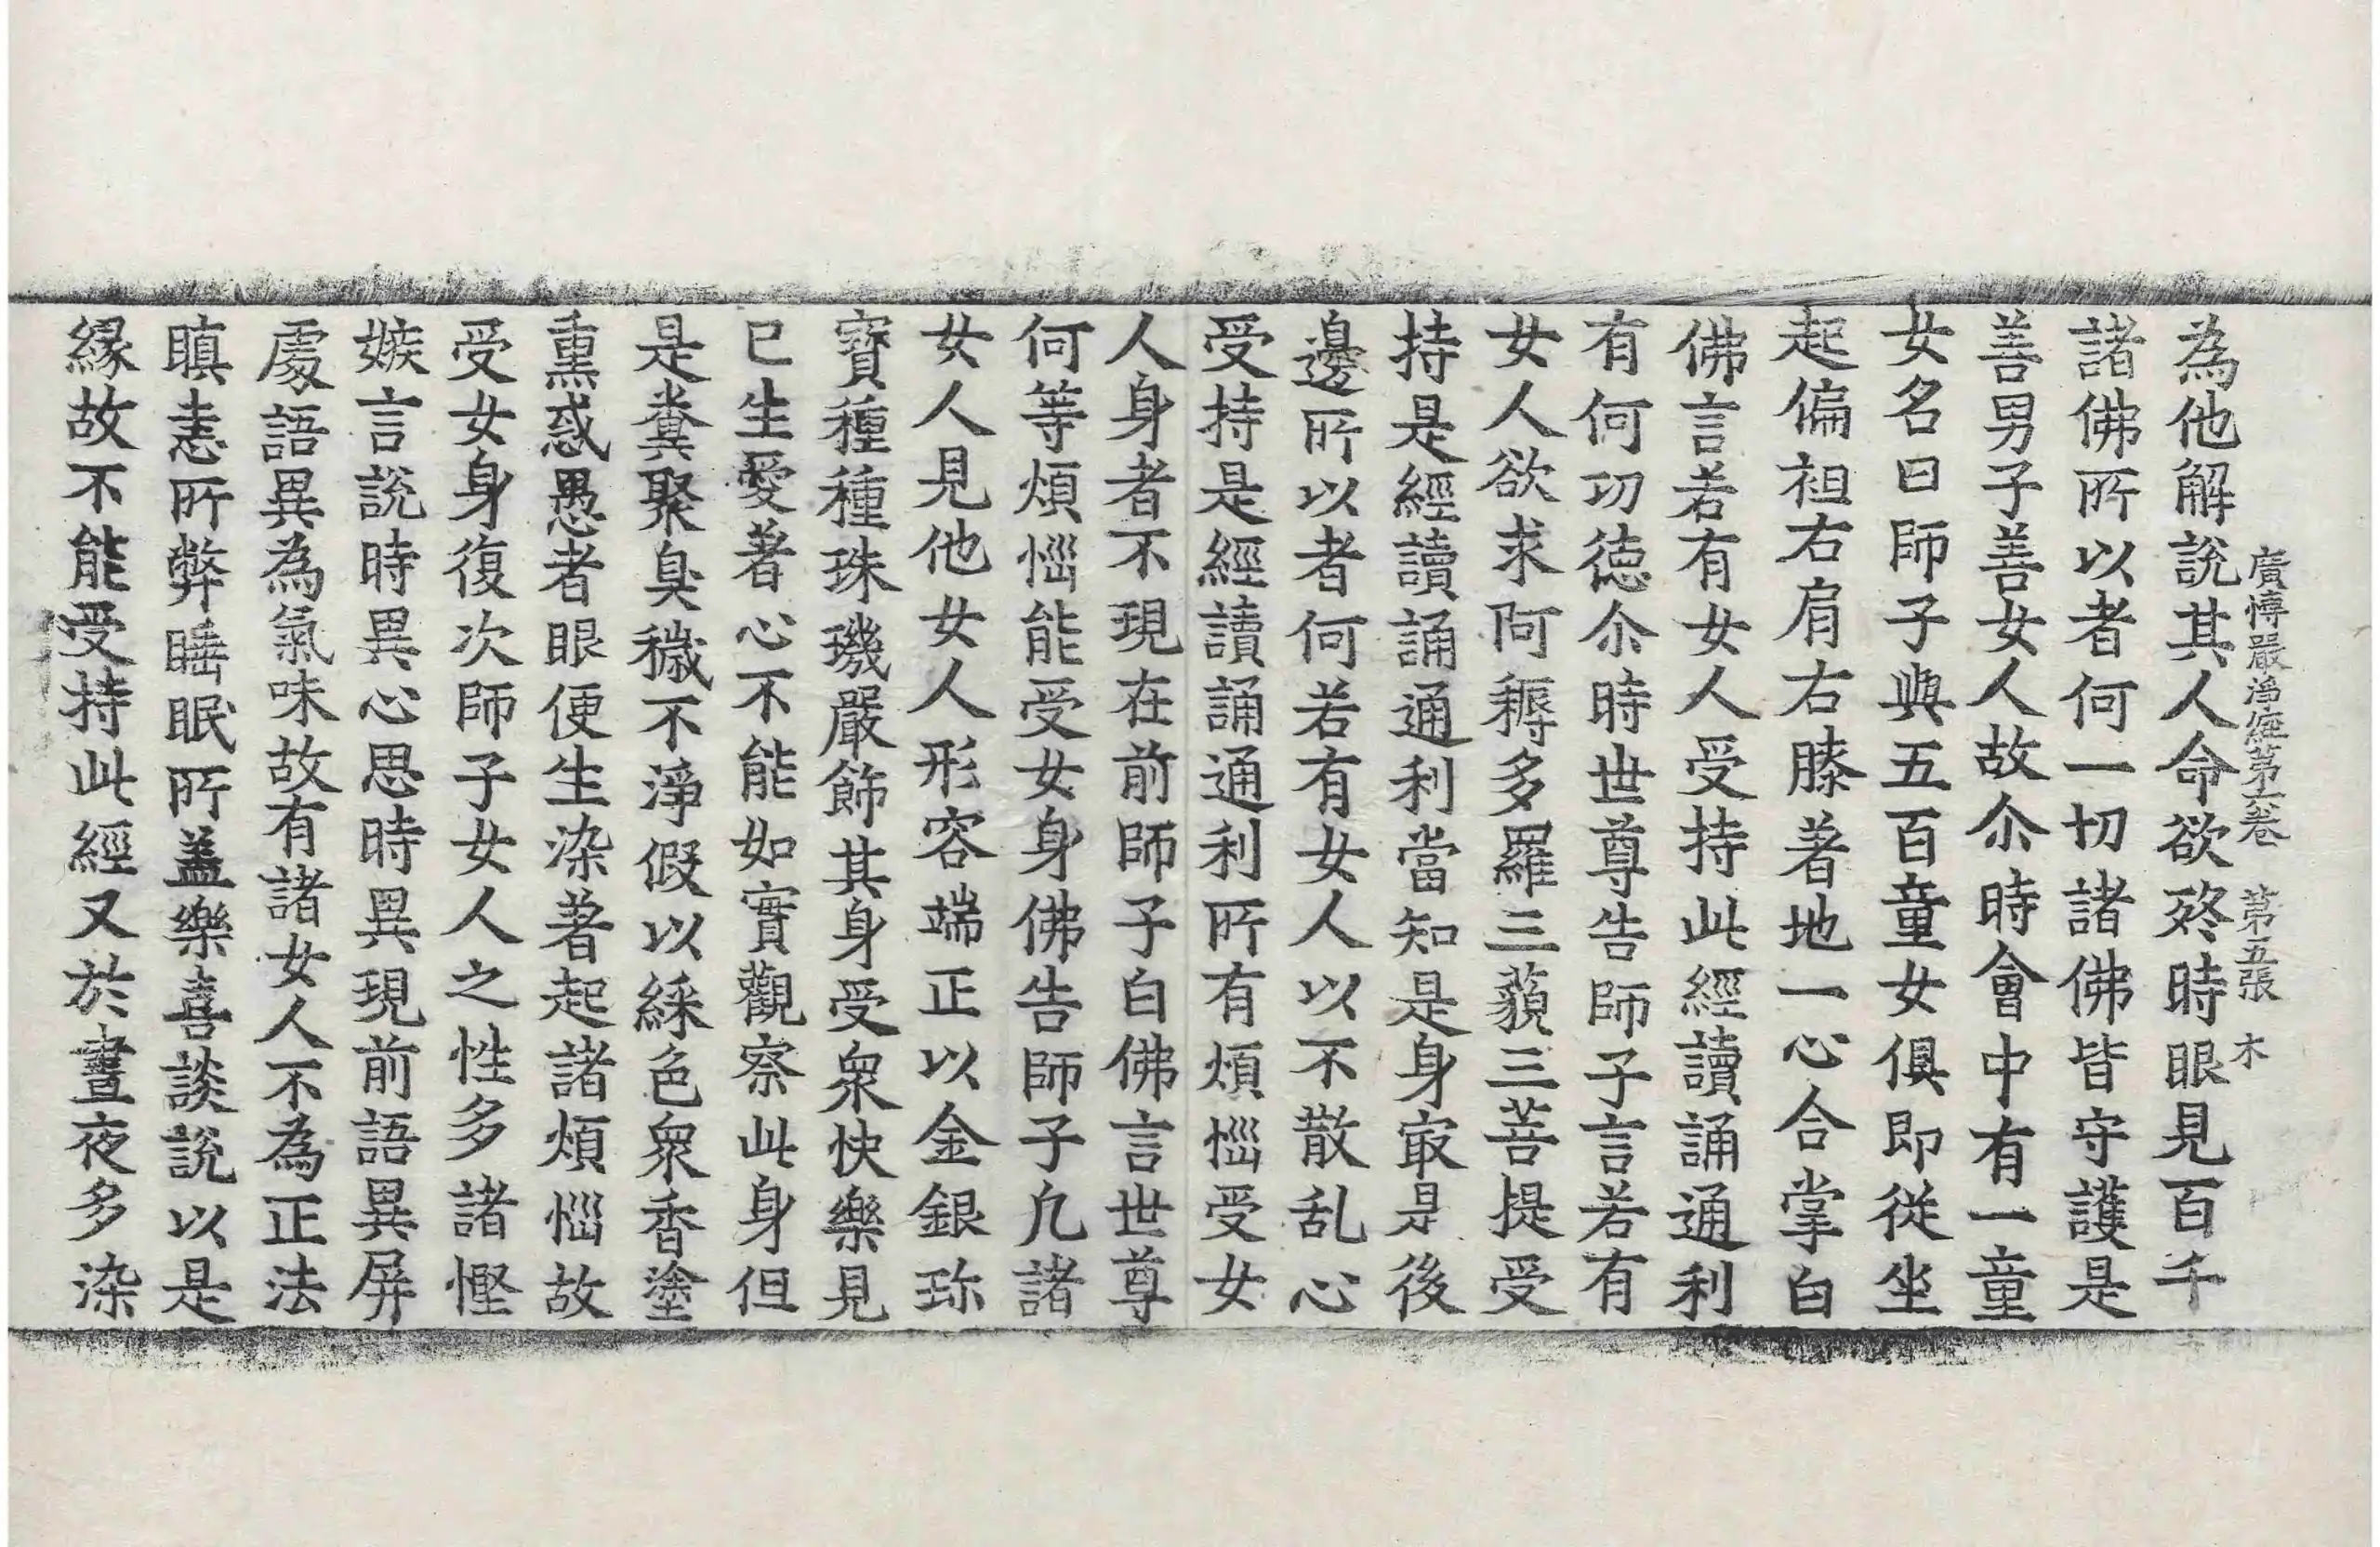 為他解說其人命欲終時眼見百千
廣博嚴淨經第二卷 第五張 木
諸佛所以者何一切諸佛皆守護是
善男子善女人故尒時會中有一童
女名曰師子與五百童女俱即從坐
起偏袒右肩右膝著地一心合掌白
佛言若有女人受持此經讀誦通利
有何功德尒時世尊告師子言若有
女人欲求阿耨多羅三藐三菩提受
持是經讀誦通利當知是身㝡是後
邊所以者何若有女人以不散乱心
受持是經讀誦通利所有煩惱受女
人身者不現在前師子白佛言世尊
何等煩惱能受女身佛告師子凡諸
女人見他女人形容端正以金銀珎
寶種種珠璣嚴飾其身受衆快樂見
已生愛著心不能如實觀察此身但
是糞聚臭穢不淨假以綵色衆香塗
熏惑愚者眼便生染著起諸煩惱故
受女身復次師子女人之性多諸慳
嫉言說時異心思時異現前語異屏
處語異為氣味故有諸女人不為正法
瞋恚所弊睡眠所盖樂喜談說以是
緣故不能受持此經又於晝夜多染